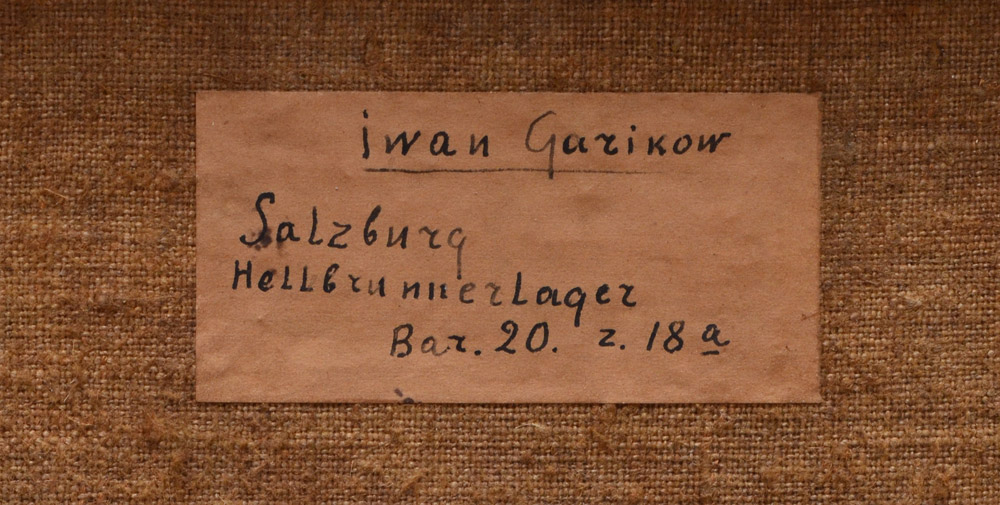 iwan Garikow
Salzburg
Hellbrunnerlager
Bar. 20. z. 18 a